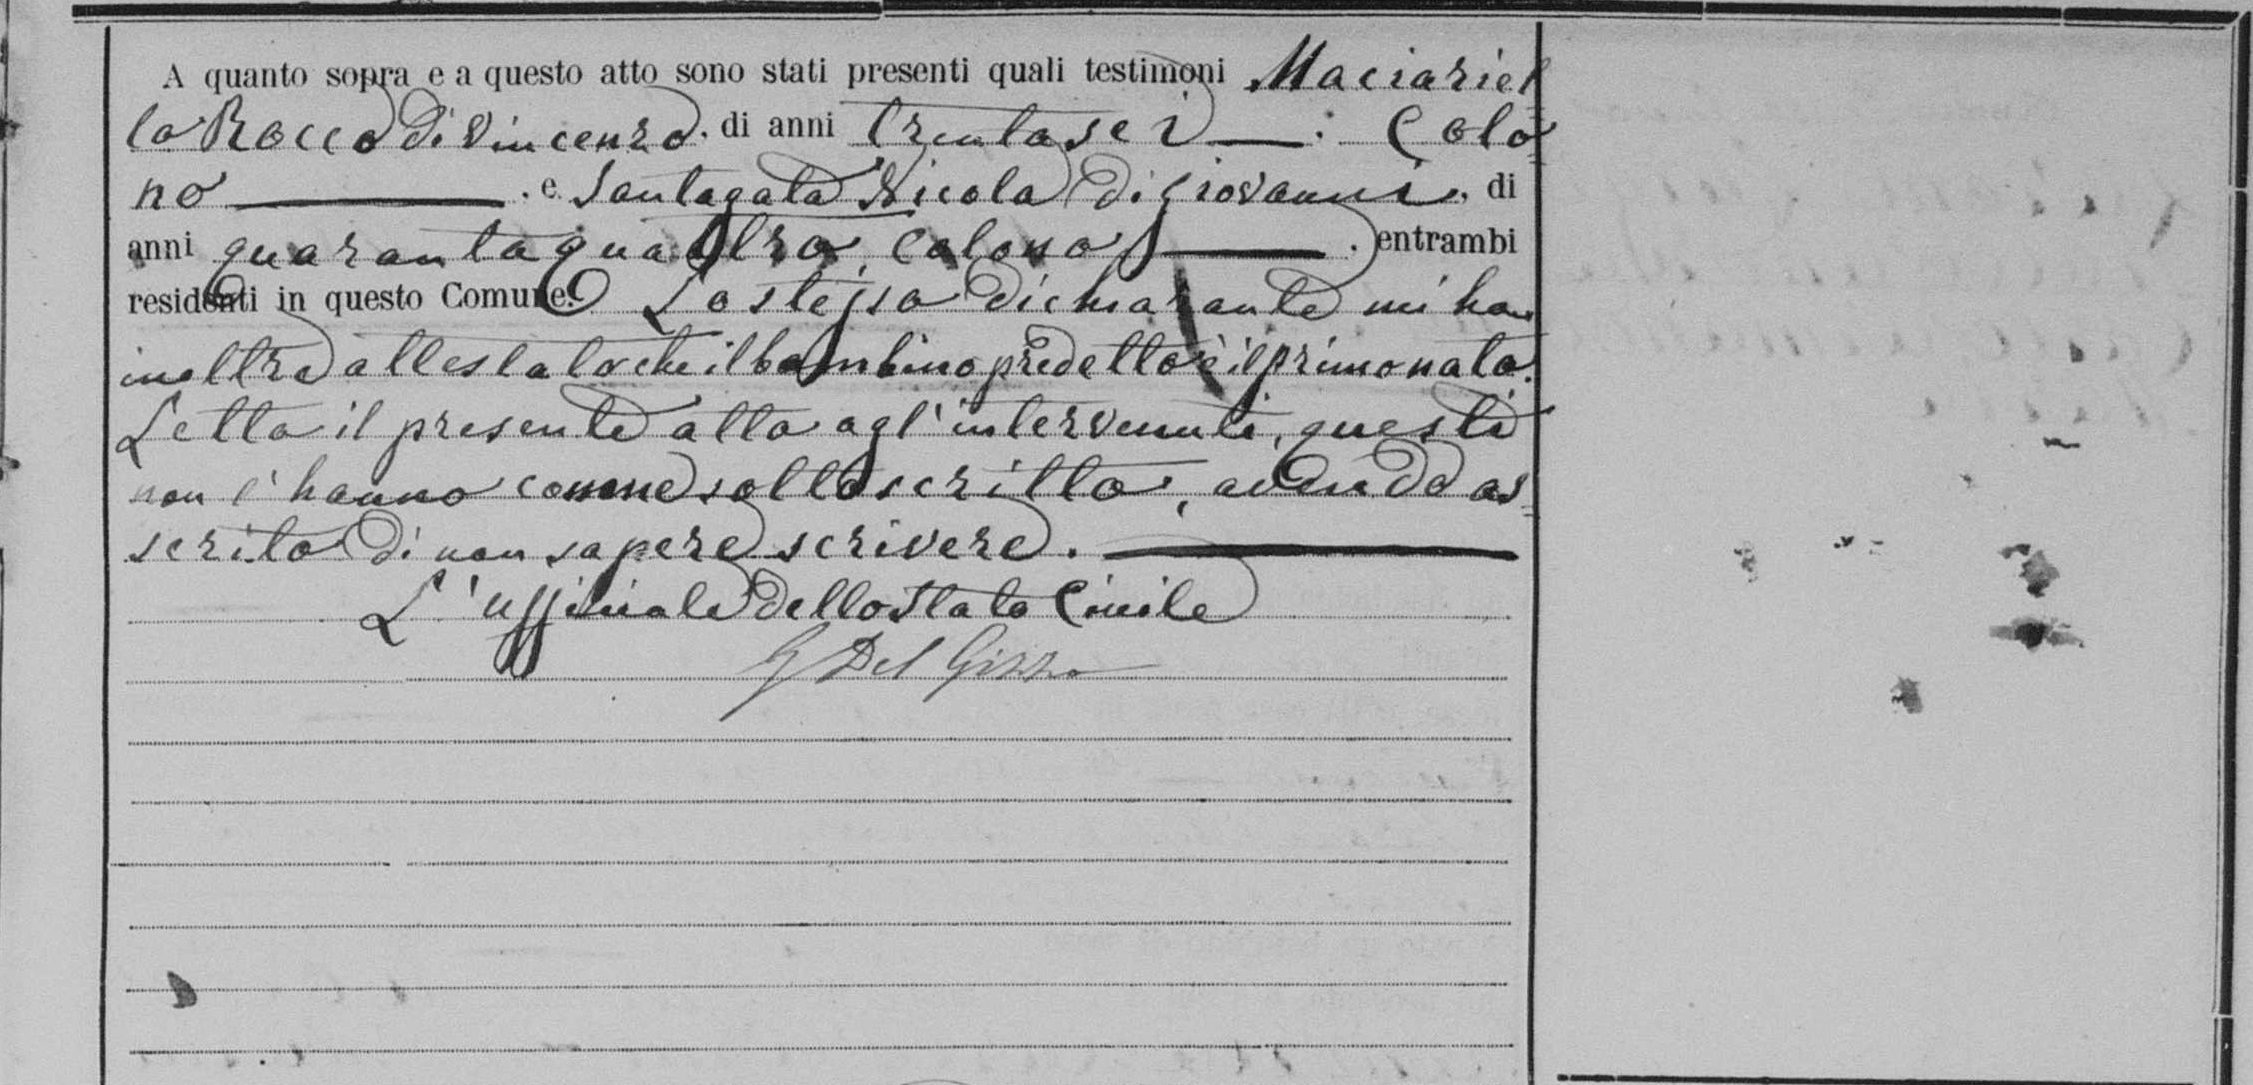 A quanto sopra e a questo atto sono stati presenti quali testimoni Maciariel
lo Rocco di Vincenzo, di anni trentasei —. Colo=
no —. e Santagata Nicola di Giovanni, di
anni quarantaquattro, colono —. entrambi
residenti in questo Comune. Lo stesso dichiarante mi ha
inoltre attestato che il bambino predetto è il primo nato.
Letto il presente atto agl'intervenuti, questi
non l'hanno comme sottoscritto, avendo as=
serito di non sapere scrivere. —
L'Uffiziale dello Stato Civile
G Del Gizzo